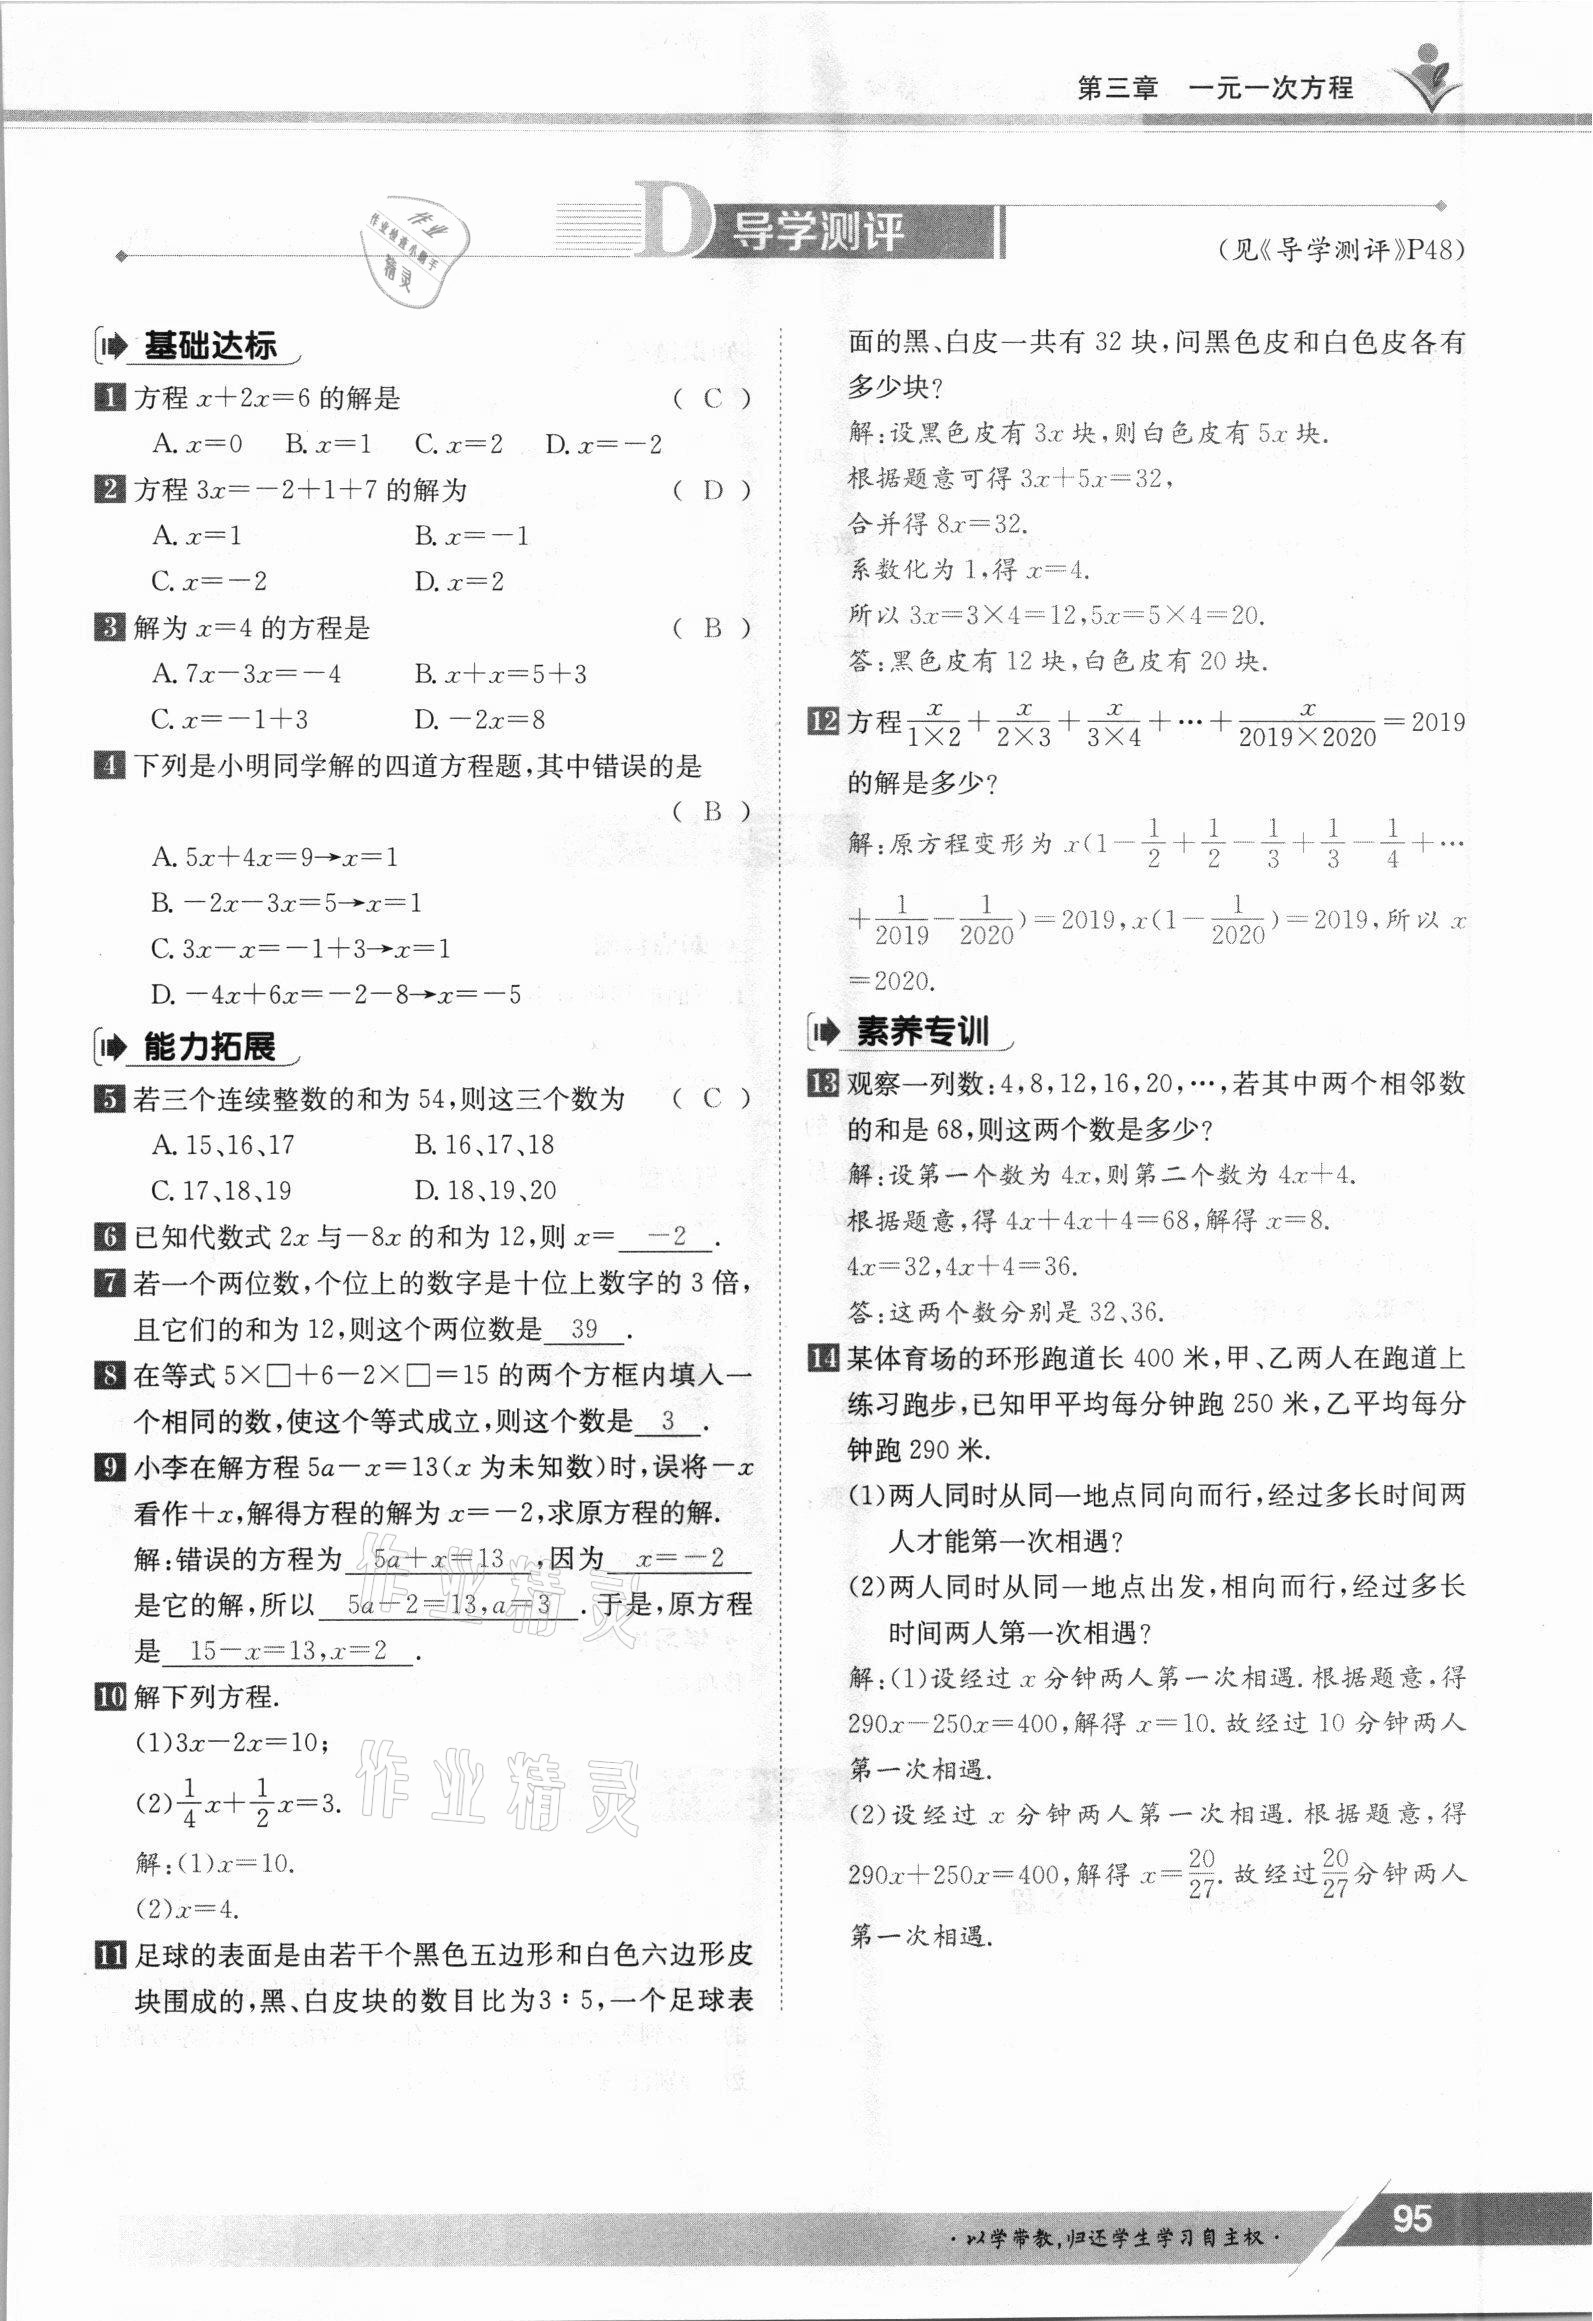 第三章 一元一次方程
D 导学测评
(见《导学测评》P48)
作业
作业检查小助手
精灵
基础达标
1 方程 x+2x=6 的解是 ( C )
A. x=0 B. x=1 C. x=2 D. x=-2
2 方程 3x=-2+1+7 的解为 ( D )
A. x=1 B. x=-1
C. x=-2 D. x=2
3 解为 x=4 的方程是 ( B )
A. 7x-3x=-4 B. x+x=5+3
C. x=-1+3 D. -2x=8
4 下列是小明同学解的四道方程题,其中错误的是
( B )
A. 5x+4x=9→x=1
B. -2x-3x=5→x=1
C. 3x-x=-1+3→x=1
D. -4x+6x=-2-8→x=-5
能力拓展
5 若三个连续整数的和为 54,则这三个数为 ( C )
A. 15、16、17 B. 16、17、18
C. 17、18、19 D. 18、19、20
6 已知代数式 2x 与-8x 的和为 12,则 x= -2 .
7 若一个两位数,个位上的数字是十位上数字的 3 倍,
且它们的和为 12,则这个两位数是 39 .
8 在等式 5×□+6-2×□=15 的两个方框内填入一
个相同的数,使这个等式成立,则这个数是 3 .
9 小李在解方程 5a-x=13(x 为未知数)时,误将-x
看作+x,解得方程的解为 x=-2,求原方程的解.
解:错误的方程为 5a+x=13 ,因为 x=-2
是它的解,所以 5a-2=13,a=3 .于是,原方程
是 15-x=13,x=2 .
作业精灵
10 解下列方程.
(1)3x-2x=10;
(2)1/4x+1/2x=3.
作业精灵
解:(1)x=10.
(2)x=4.
11 足球的表面是由若干个黑色五边形和白色六边形皮
块围成的,黑、白皮块的数目比为3∶5,一个足球表
面的黑、白皮一共有 32 块,问黑色皮和白色皮各有
多少块?
解:设黑色皮有 3x 块,则白色皮有 5x 块.
根据题意可得 3x+5x=32,
合并得 8x=32.
系数化为 1,得 x=4.
所以 3x=3×4=12,5x=5×4=20.
答:黑色皮有 12 块,白色皮有 20 块.
12 方程x/(1×2)+x/(2×3)+x/(3×4)+…+x/(2019×2020)=2019
的解是多少?
解:原方程变形为 x(1-1/2+1/2-1/3+1/3-1/4+…
+1/2019-1/2020)=2019,x(1-1/2020)=2019,所以 x
=2020.
素养专训
13 观察一列数:4,8,12,16,20,…,若其中两个相邻数
的和是 68,则这两个数是多少?
解:设第一个数为 4x,则第二个数为 4x+4.
根据题意,得 4x+4x+4=68,解得 x=8.
4x=32,4x+4=36.
答:这两个数分别是 32、36.
14 某体育场的环形跑道长 400 米,甲、乙两人在跑道上
练习跑步,已知甲平均每分钟跑 250 米,乙平均每分
钟跑 290 米.
(1)两人同时从同一地点同向而行,经过多长时间两
人才能第一次相遇?
(2)两人同时从同一地点出发,相向而行,经过多长
时间两人第一次相遇?
解:(1)设经过 x 分钟两人第一次相遇.根据题意,得
290x-250x=400,解得 x=10.故经过 10 分钟两人
第一次相遇.
(2)设经过 x 分钟两人第一次相遇.根据题意,得
290x+250x=400,解得 x=20/27.故经过20/27分钟两人
第一次相遇.
·以学带教,归还学生学习自主权·
95